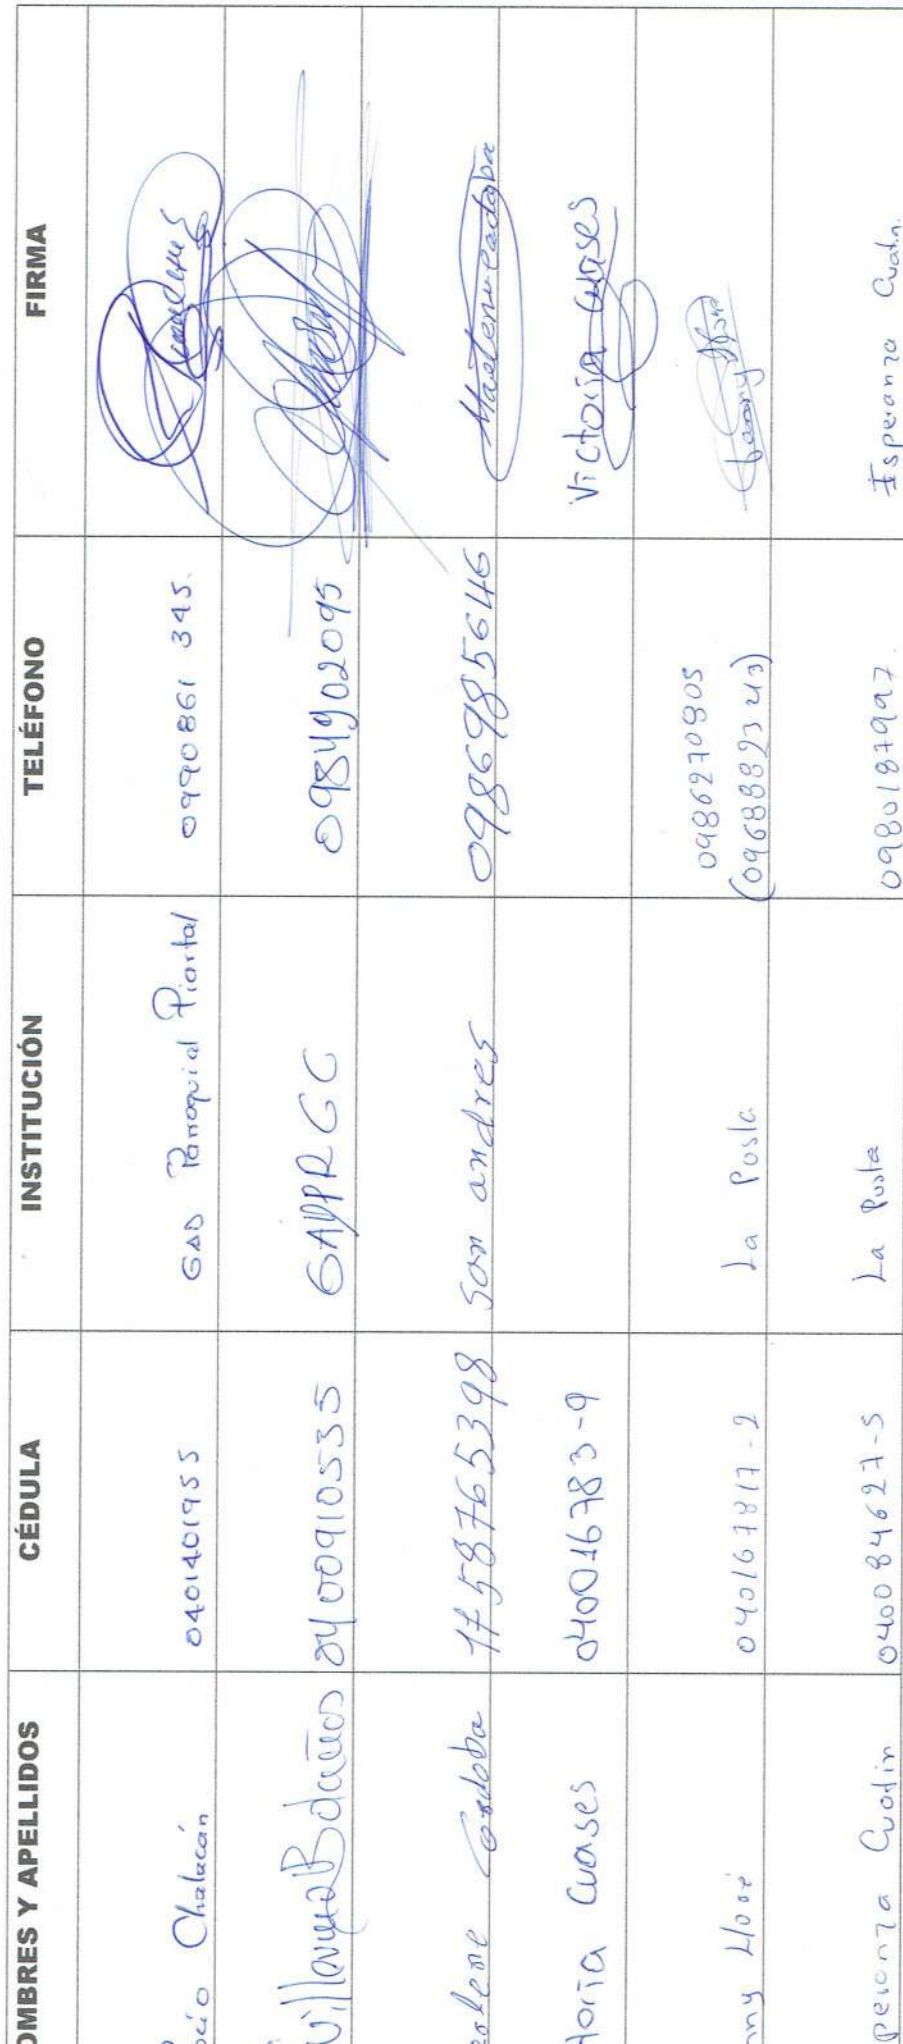 OMBRES Y APELLIDOS CÉDULA INSTITUCIÓN TELÉFONO FIRMA
ocío Chalacán 040140195 5 GAD Parroquial Piartal 0990861 345.
Villarreal Bolaños 0400910535 GADPRGC 0984902095
eslene Cordoba 1758765398 San andres 0986985646
toria Cuases 040016783-9 Victoria Cuases
nny 040167817-2 La Posta 0986270805
(0968889343)
peranza Cuatin 040084627-5 La Posta 0980187997. Esperanza Cuatin.